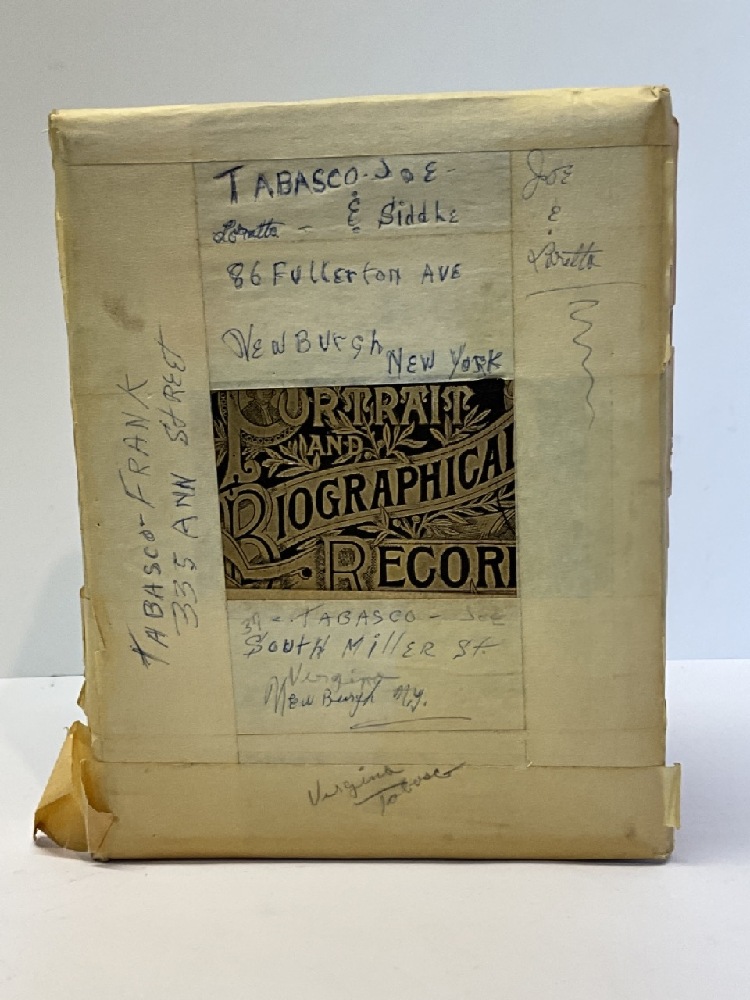 TABASCO-JOE-
& Siddhe
Loretta -
86 Fullerton AVE
NewBurgh
NEW YORK
JOE
&
Loretta
TABASCO-FRANK
335 ANN STREET
PORTRAIT
AND
BIOGRAPHICAL
RECORD
39 - TABASCO - JOE
SOUTH MillER St.
Virgina
NewBurgh N.Y.
Virgina
Tabasco